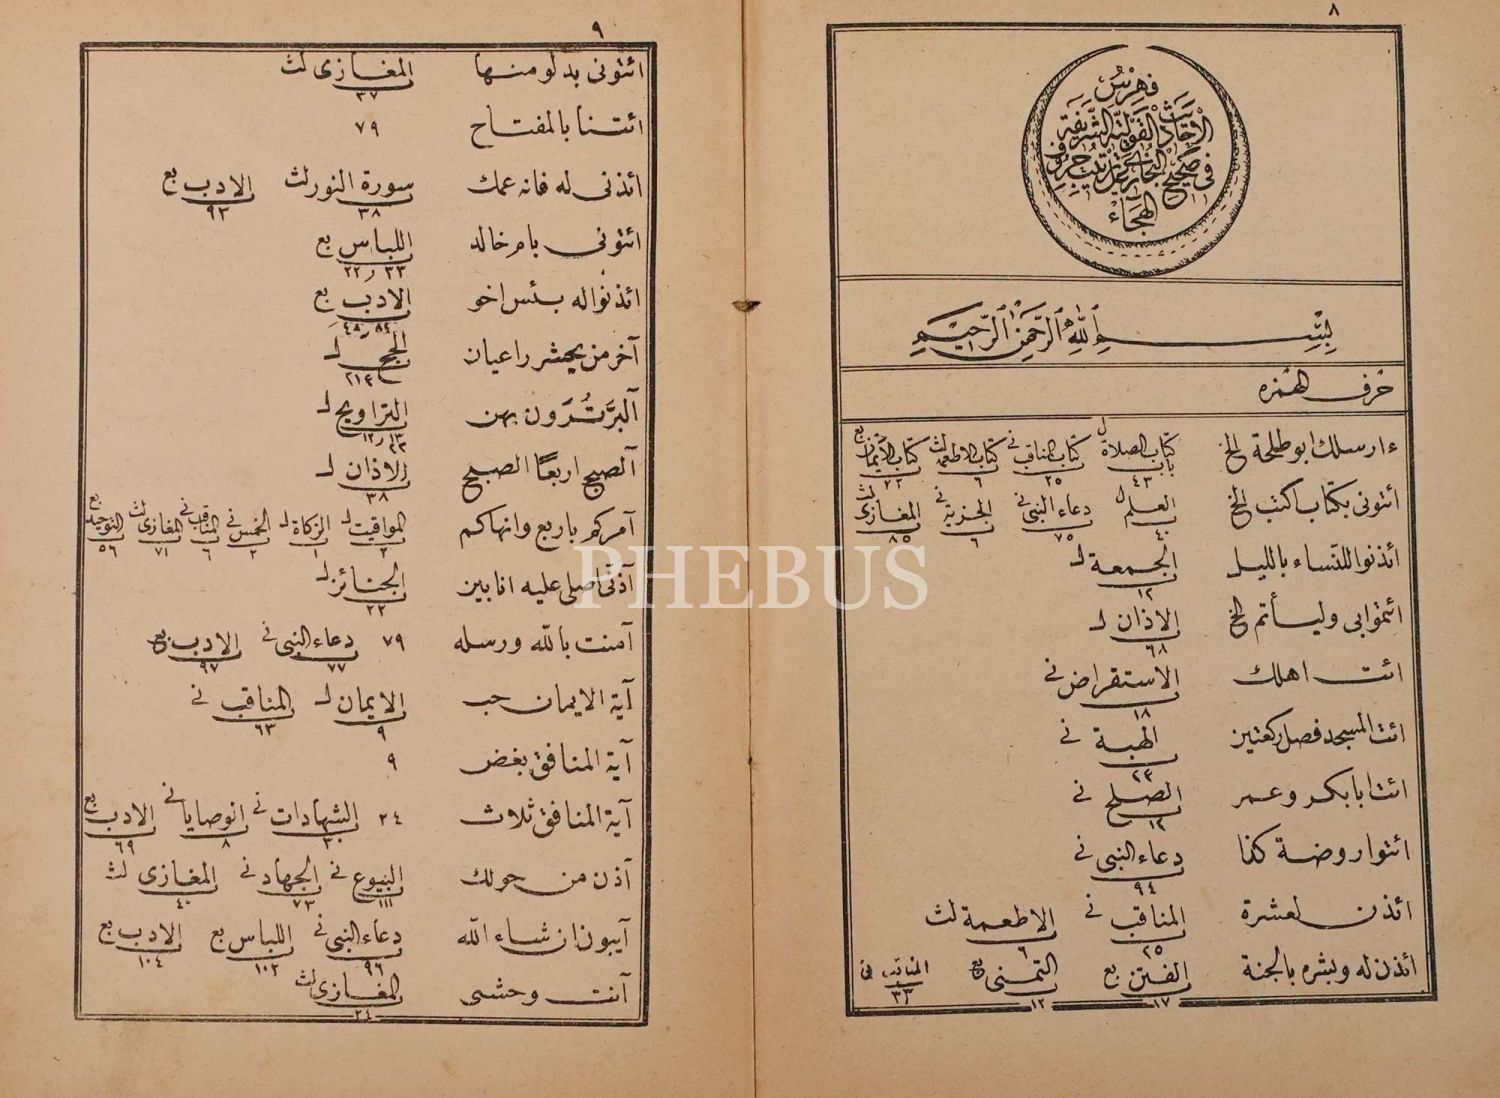 ٨
فهرس
الاحاديث القولية الشريفة
في صحيح البخاري على ترتيب حروف
الهجاء
بسم الله الرحمن الرحيم
حرف الهمزه
ءارسلك ابو طلحة الخ كتاب الصلاة ل باب ٤٣ كتاب المناقب نى ٢٥ كتاب الاطعمة لث ٦ كتاب الأيمان بع ٢٢
ائتونى بكتاب اكتب الخ العلم ل ٤٠ دعاء النبى نى ٧٥ الجزية نى ٦ المغازى لث ٨٥
ائذنوا للنساء بالليل الجمعة ل ١٢
ائتموا بى وليأتم الخ الاذان ل ٦٨
ائت اهلك الاستقراض نى ١٨
ائت المسجد فصل ركعتين الهبة نى ٢٣
ائت ابا بكر وعمر الصلح نى ١٢
ائتوا روضة كذا دعاء النبى نى ٩٤
ائذن لعشرة المناقب نى ٢٥ الاطعمة لث ٦
ائذن له وبشره بالجنة الفتن بع ١٧ التمنى بع ١٢ المناقب نى ٣٣
٩
ائتونى بدلو منها المغازى لث ٣٧
ائتنا بالمفتاح ٧٩
ائذنى له فانه عمك سورة النور لث ٣٨ الادب بع ٩٣
ائتونى بام خالد اللباس بع ٣٣ و٢٢
ائذنوا له بئس اخو الادب بع ٨٤ و٤٨
آخر من يحشر راعيان الحج ل ٢١٤
آلبر تُرَون بهن التراويح ل ١٣ و١٢
آلصبح اربعًا الصبح الاذان ل ٣٨
آمركم باربع وانهاكم المواقيت ل ٢ الزكاة ل ١ الخمس نى ٢ المناقب نى ٦ المغازى لث ٧١ التوحيد بع ٥٦
آذنّى اصلى عليه انا بين الجنائز ل ٢٢
آمنت بالله ورسله ٧٩ دعاء النبى نى ٧٧ الادب بع ٩٧
آية الايمان حب الايمان ل ٩ المناقب نى ٦٣
آية المنافق بغض ٩
آية المنافق ثلاث ٢٤ الشهادات نى ٣٠ الوصايا نى ٨ الادب بع ٦٩
آذن من حولك البيوع نى ١١١ الجهاد نى ٧٣ المغازى لث ٤٠
آيبون ان شاء الله دعاء النبى نى ٩٦ اللباس بع ١٠٢ الادب بع ١٠٤
آنت وحشى المغازى لث ٢٤
PHEBUS